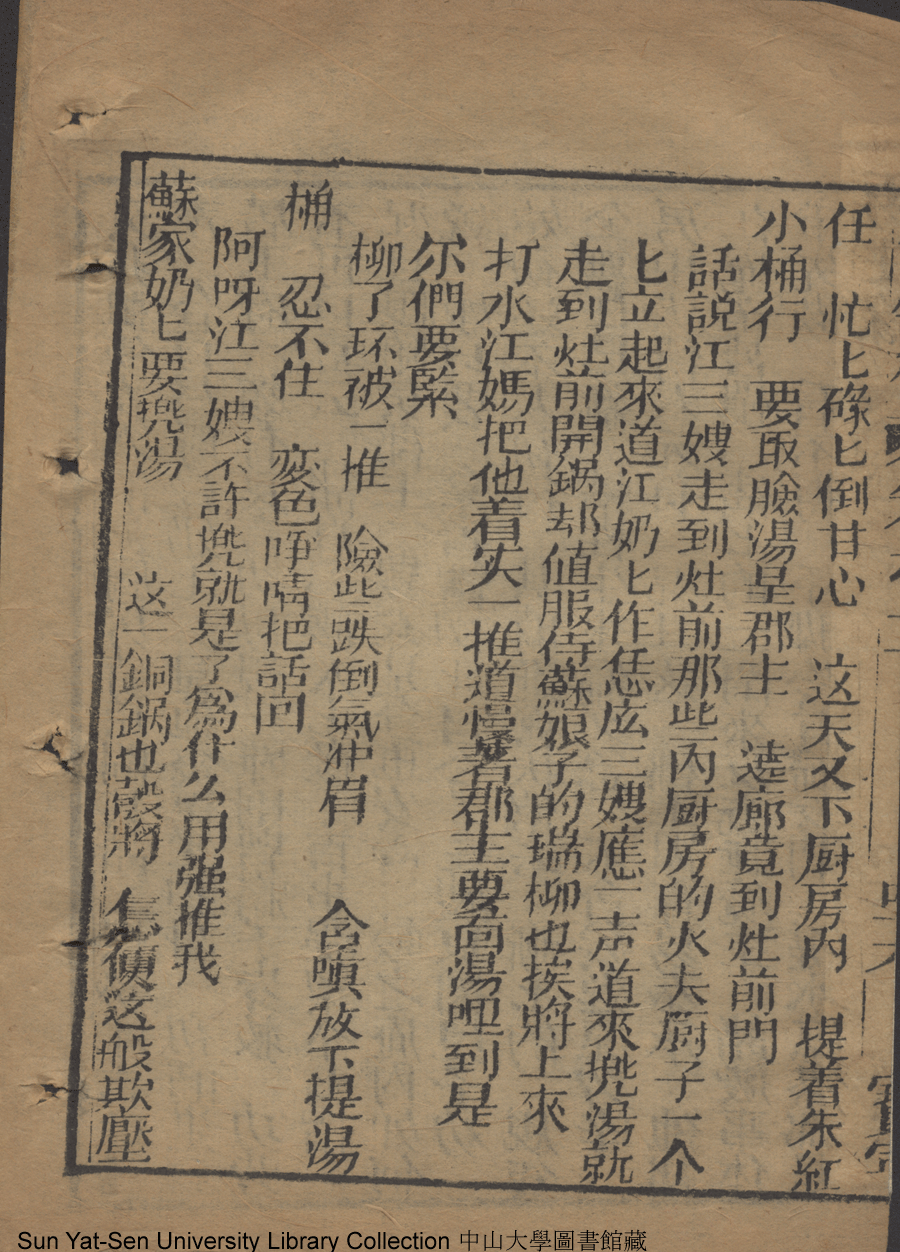 任　忙匕碌匕倒甘心　这天又下厨房內　提着朱紅
小桶行　要取臉湯呈郡主　遶廊竟到灶前門
話説江三嫂走到灶前那些內厨房的火夫厨子一个
匕立起來道江奶匕作恁庅三嫂應一声道來兠湯就
走到灶前開鍋却值服侍蘇娘子的瑞柳也挨將上來
打水江媽把他着实一推道慢着郡主要面湯哩到是
尔們要緊
柳了环被一推　險些跌倒氣冲眉　含嗔放下提湯
桶　忍不住　变色睁睛把話回
阿呀江三嫂不許兠就是了為什么用强推我
蘇家奶匕要兠湯　这一銅鍋也彀將　怎便这般欺壓
Sun Yat-Sen University Library Collection 中山大學圖書館藏